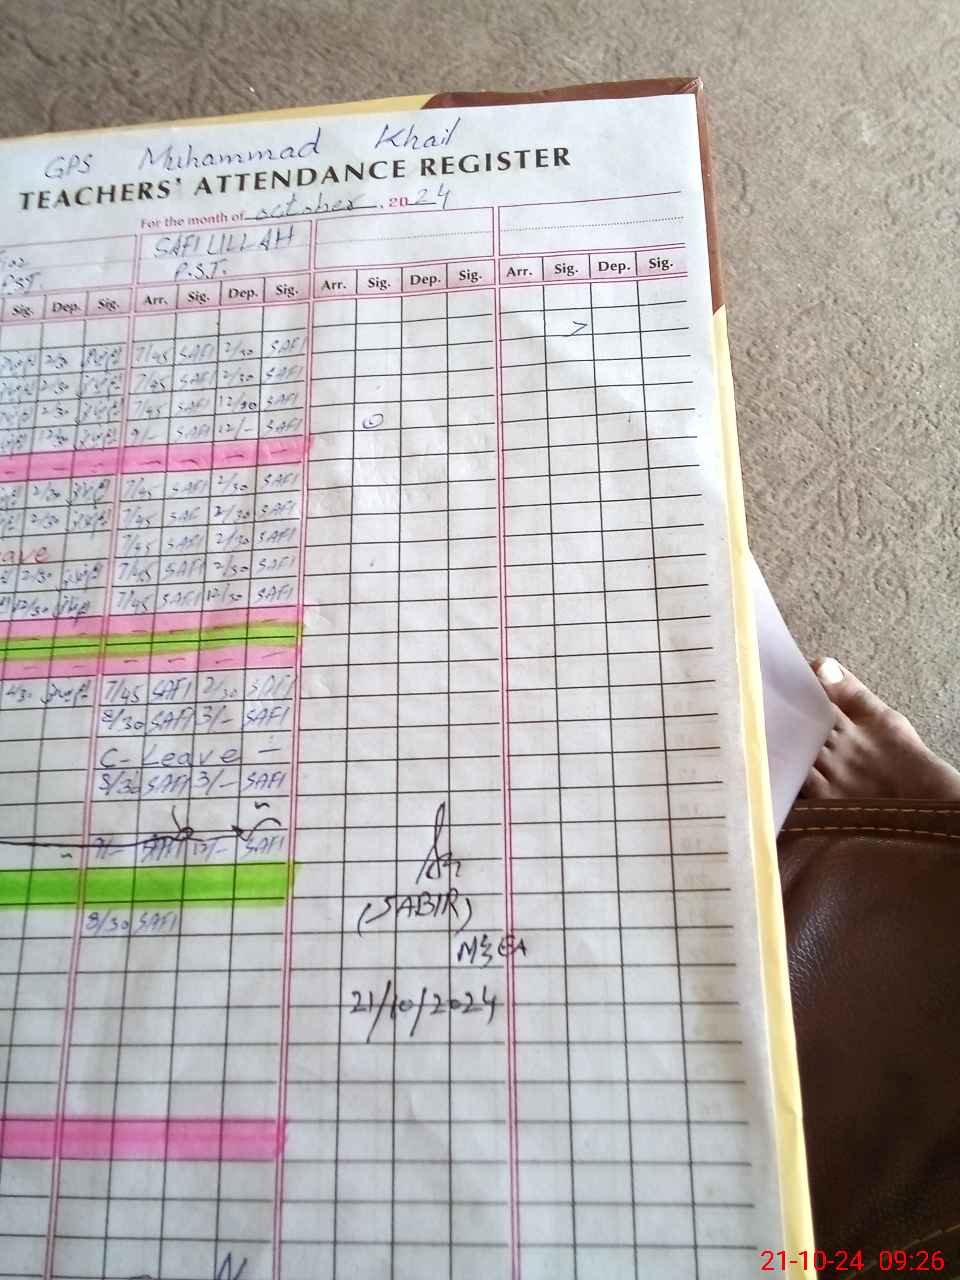 GPS Muhammad Khail
TEACHERS' ATTENDANCE REGISTER
For the month of october 2024
SAFI ULLAH
P.S.T. P.S.T.
Sig. Dep. Sig. Arr. Sig. Dep. Sig. Arr. Sig. Dep. Sig. Arr. Sig. Dep. Sig.
2/30 7/45 SAFI 2/30 SAFI
2/30 7/45 SAFI 2/30 SAFI
2/30 7/45 SAFI 12/30 SAFI
12/30 9/- SAFI 12/- SAFI
2/30 7/45 SAFI 2/30 SAFI
2/30 7/45 SAF 2/30 SAFI
ave 7/45 SAFI 2/30 SAFI
2/30 7/45 SAFI 2/30 SAFI
12/30 7/45 SAFI 12/30 SAFI
7/45 SAFI 2/30 SAFI
8/30 SAFI 3/- SAFI
C- Leave -
8/30 SAFI 3/- SAFI
9/- SAFI 12/- SAFI
8/30 SAFI
(SABIR)
M&EA
21/10/2024
21-10-24 09:26